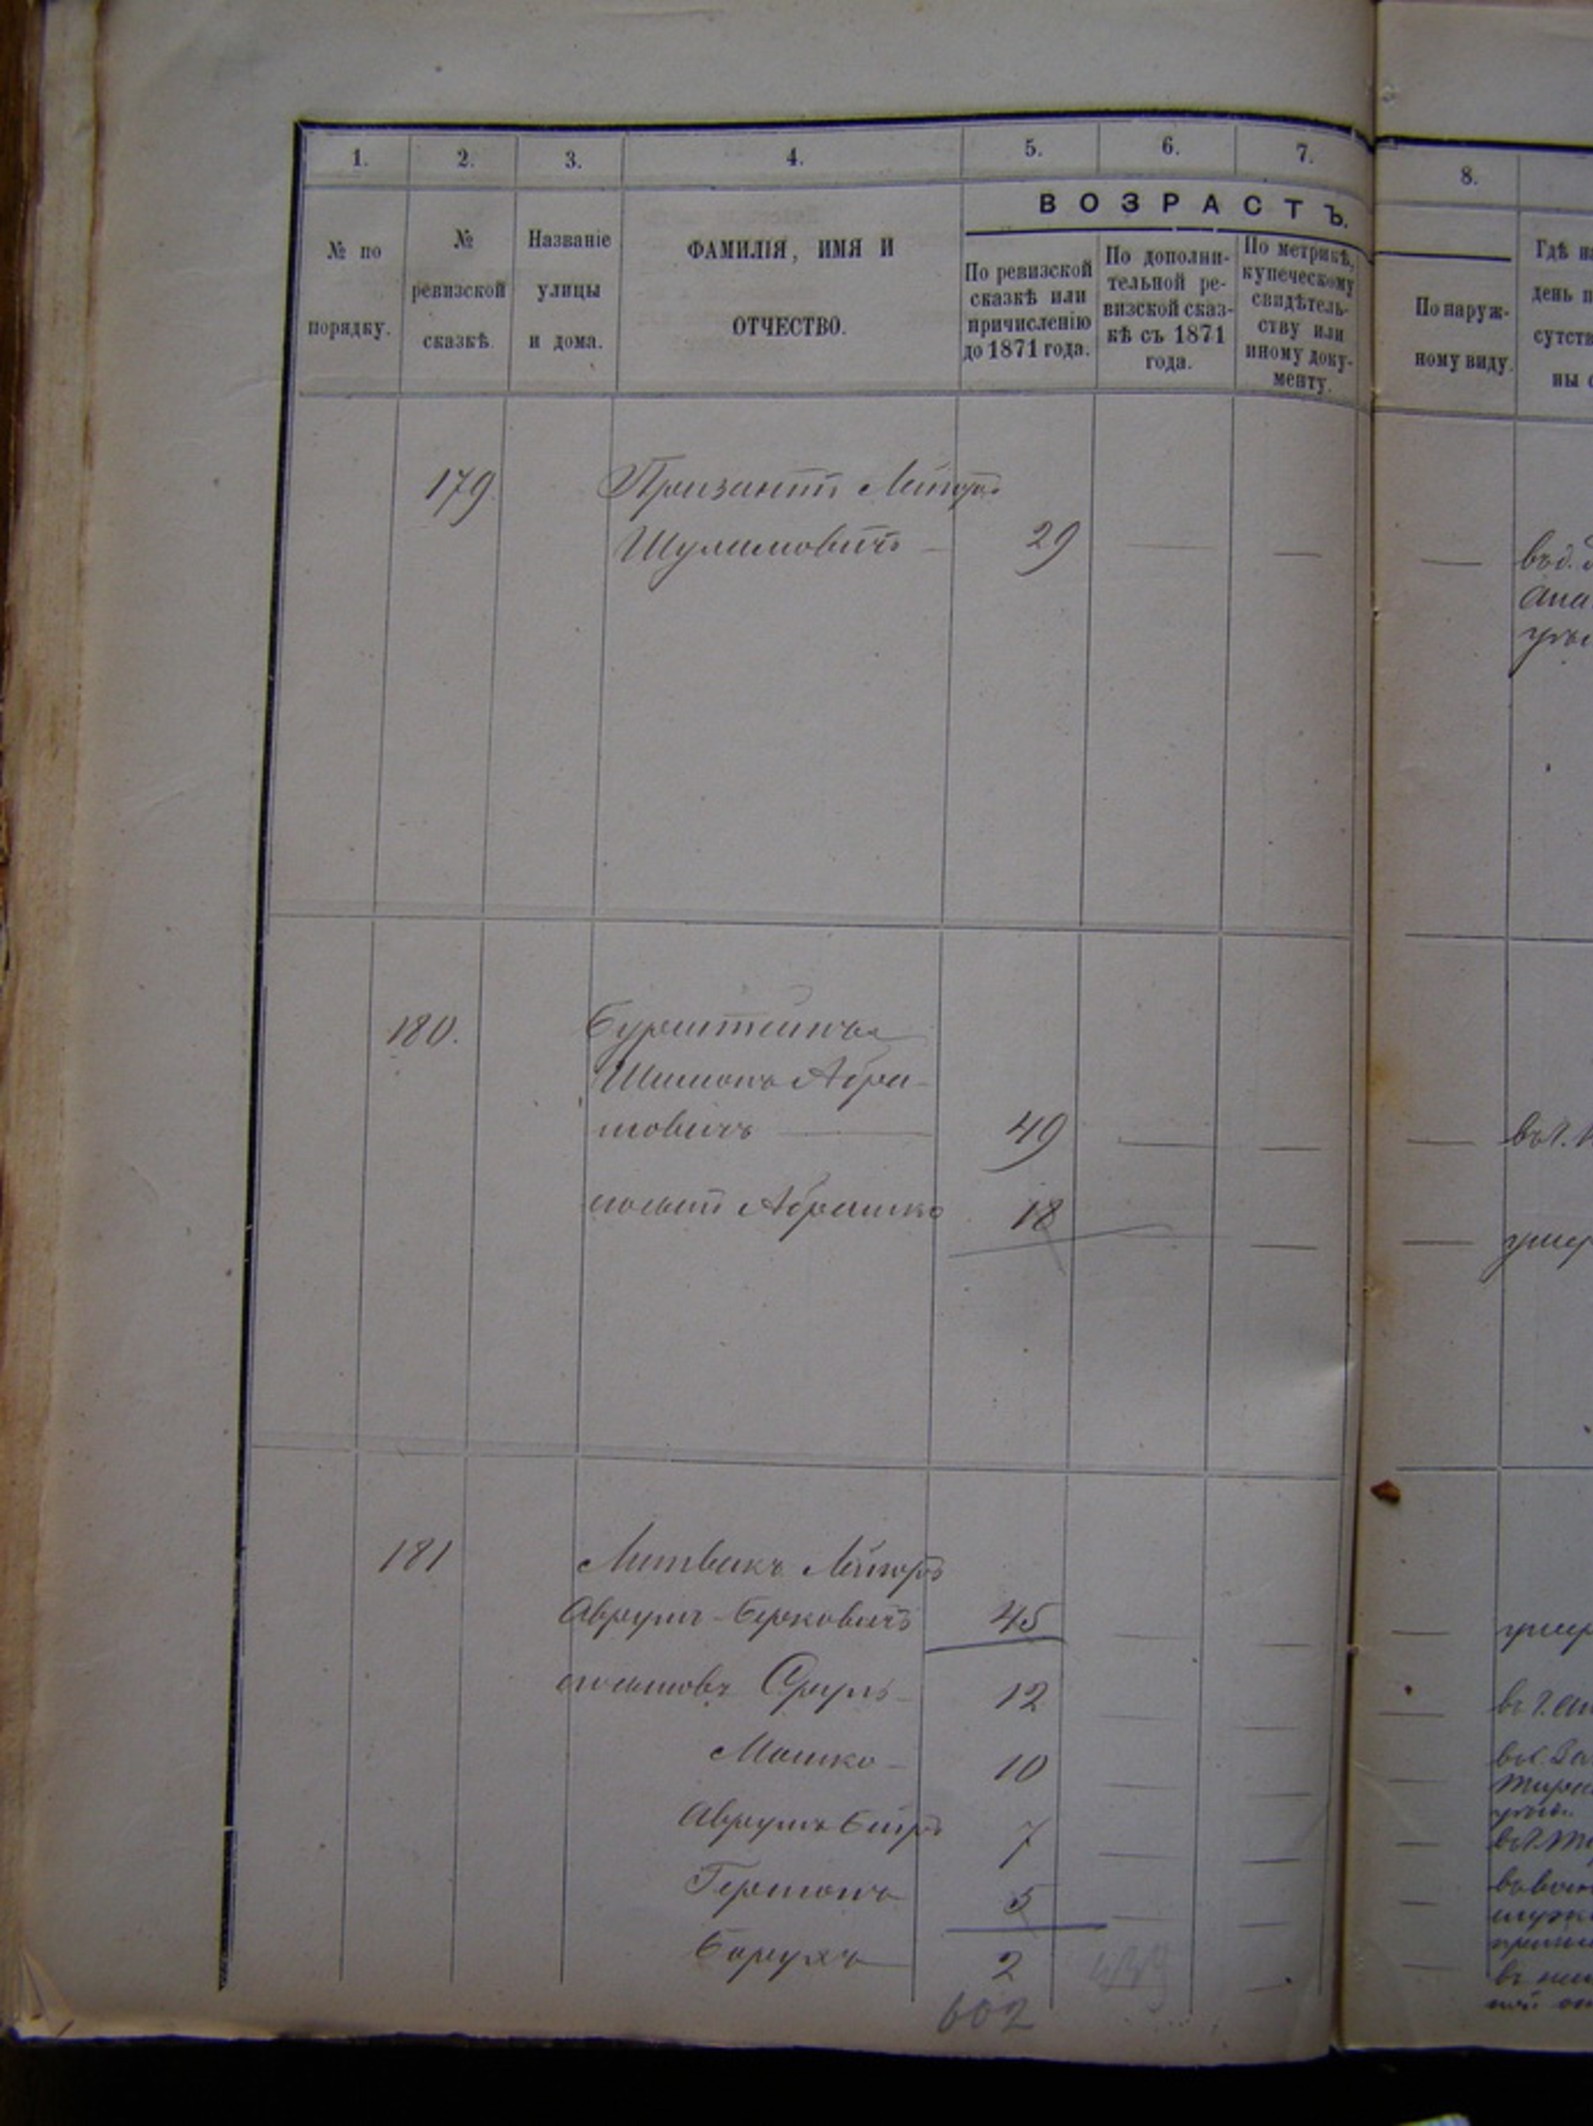 1.
2.
3.
4.
5.
6.
7.
8.
№ по
порядку.
№
ревизской
сказкѣ.
Названіе
улицы
и дома.
ФАМИЛІЯ, ИМЯ И
ОТЧЕСТВО.
ВОЗРАСТЪ.
По ревизской
сказкѣ или
причисленію
до 1871 года.
По дополни-
тельной ре-
визской сказ-
кѣ съ 1871
года.
По метрикѣ,
купеческому
свидѣтель-
ству или
иному доку-
менту.
По наруж-
ному виду.
Гдѣ на
день п
сутств
ны с
179. Призантъ
Шулимовичъ — 29 — — —
180. Бурштейнъ
Шимонъ Абра-
мовичъ — 49 — — —
Абрашко 18 — — —
умер
181 Литвакъ Лейзоръ
Аврумъ-Берковичъ 45 — — — умер
сыновъ Сруль 12 — — —
Мошко — 10 — — —
Аврумъ Беръ 7 — — —
Гершонъ 5 — — —
Борухъ 2 — —
602